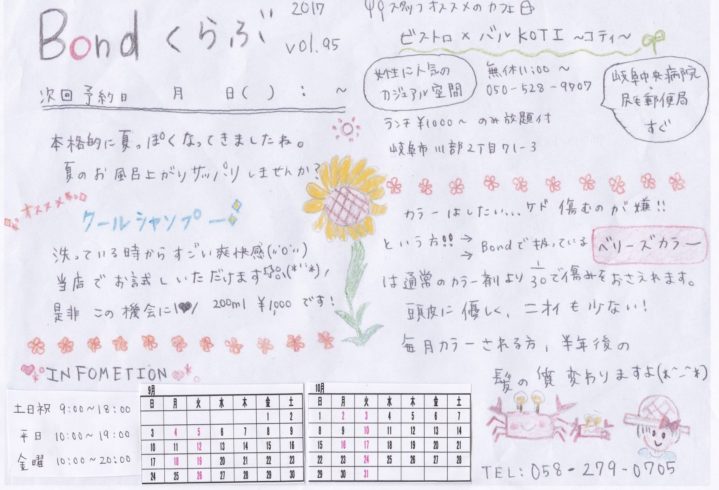 Bond くらぶ
2017
vol.95
次回予約日　月　日( )　:　〜
本格的に夏っぽくなってきましたね。
夏のお風呂上がりサッパリしませんか?
オススメ
クールシャンプー
洗っている時からすごい爽快感
当店でお試しいただけます
是非 この機会に!♥/ 200ml ¥1,000です!
INFOMETION
土日祝 9:00〜18:00
平日 10:00〜19:00
金曜 10:00〜20:00
9月
日 月 火 水 木 金 土
1 2
3 4 5 6 7 8 9
10 11 12 13 14 15 16
17 18 19 20 21 22 23
24 25 26 27 28 29 30
10月
日 月 火 水 木 金 土
1 2 3 4 5 6 7
8 9 10 11 12 13 14
15 16 17 18 19 20 21
22 23 24 25 26 27 28
29 30 31
スタッフオススメのカフェ
ビストロ×バル KOTI 〜コティ〜
女性に人気の
カジュアル空間
無休11:00〜
050-528-9707
ランチ¥1000〜 のみ放題付
岐阜市川部2丁目71-3
岐阜中央病院
郵便局
すぐ
カラーはしたい...ケド 傷むのが嫌!!
という方!!→ Bondで扱っている ベリーズカラー
→
は通常のカラー剤より 1/30で傷みをおさえれます。
頭皮に優しく、ニオイも少ない!
毎月カラーされる方、半年後の
髪の質変わりますよ
TEL:058-279-0705